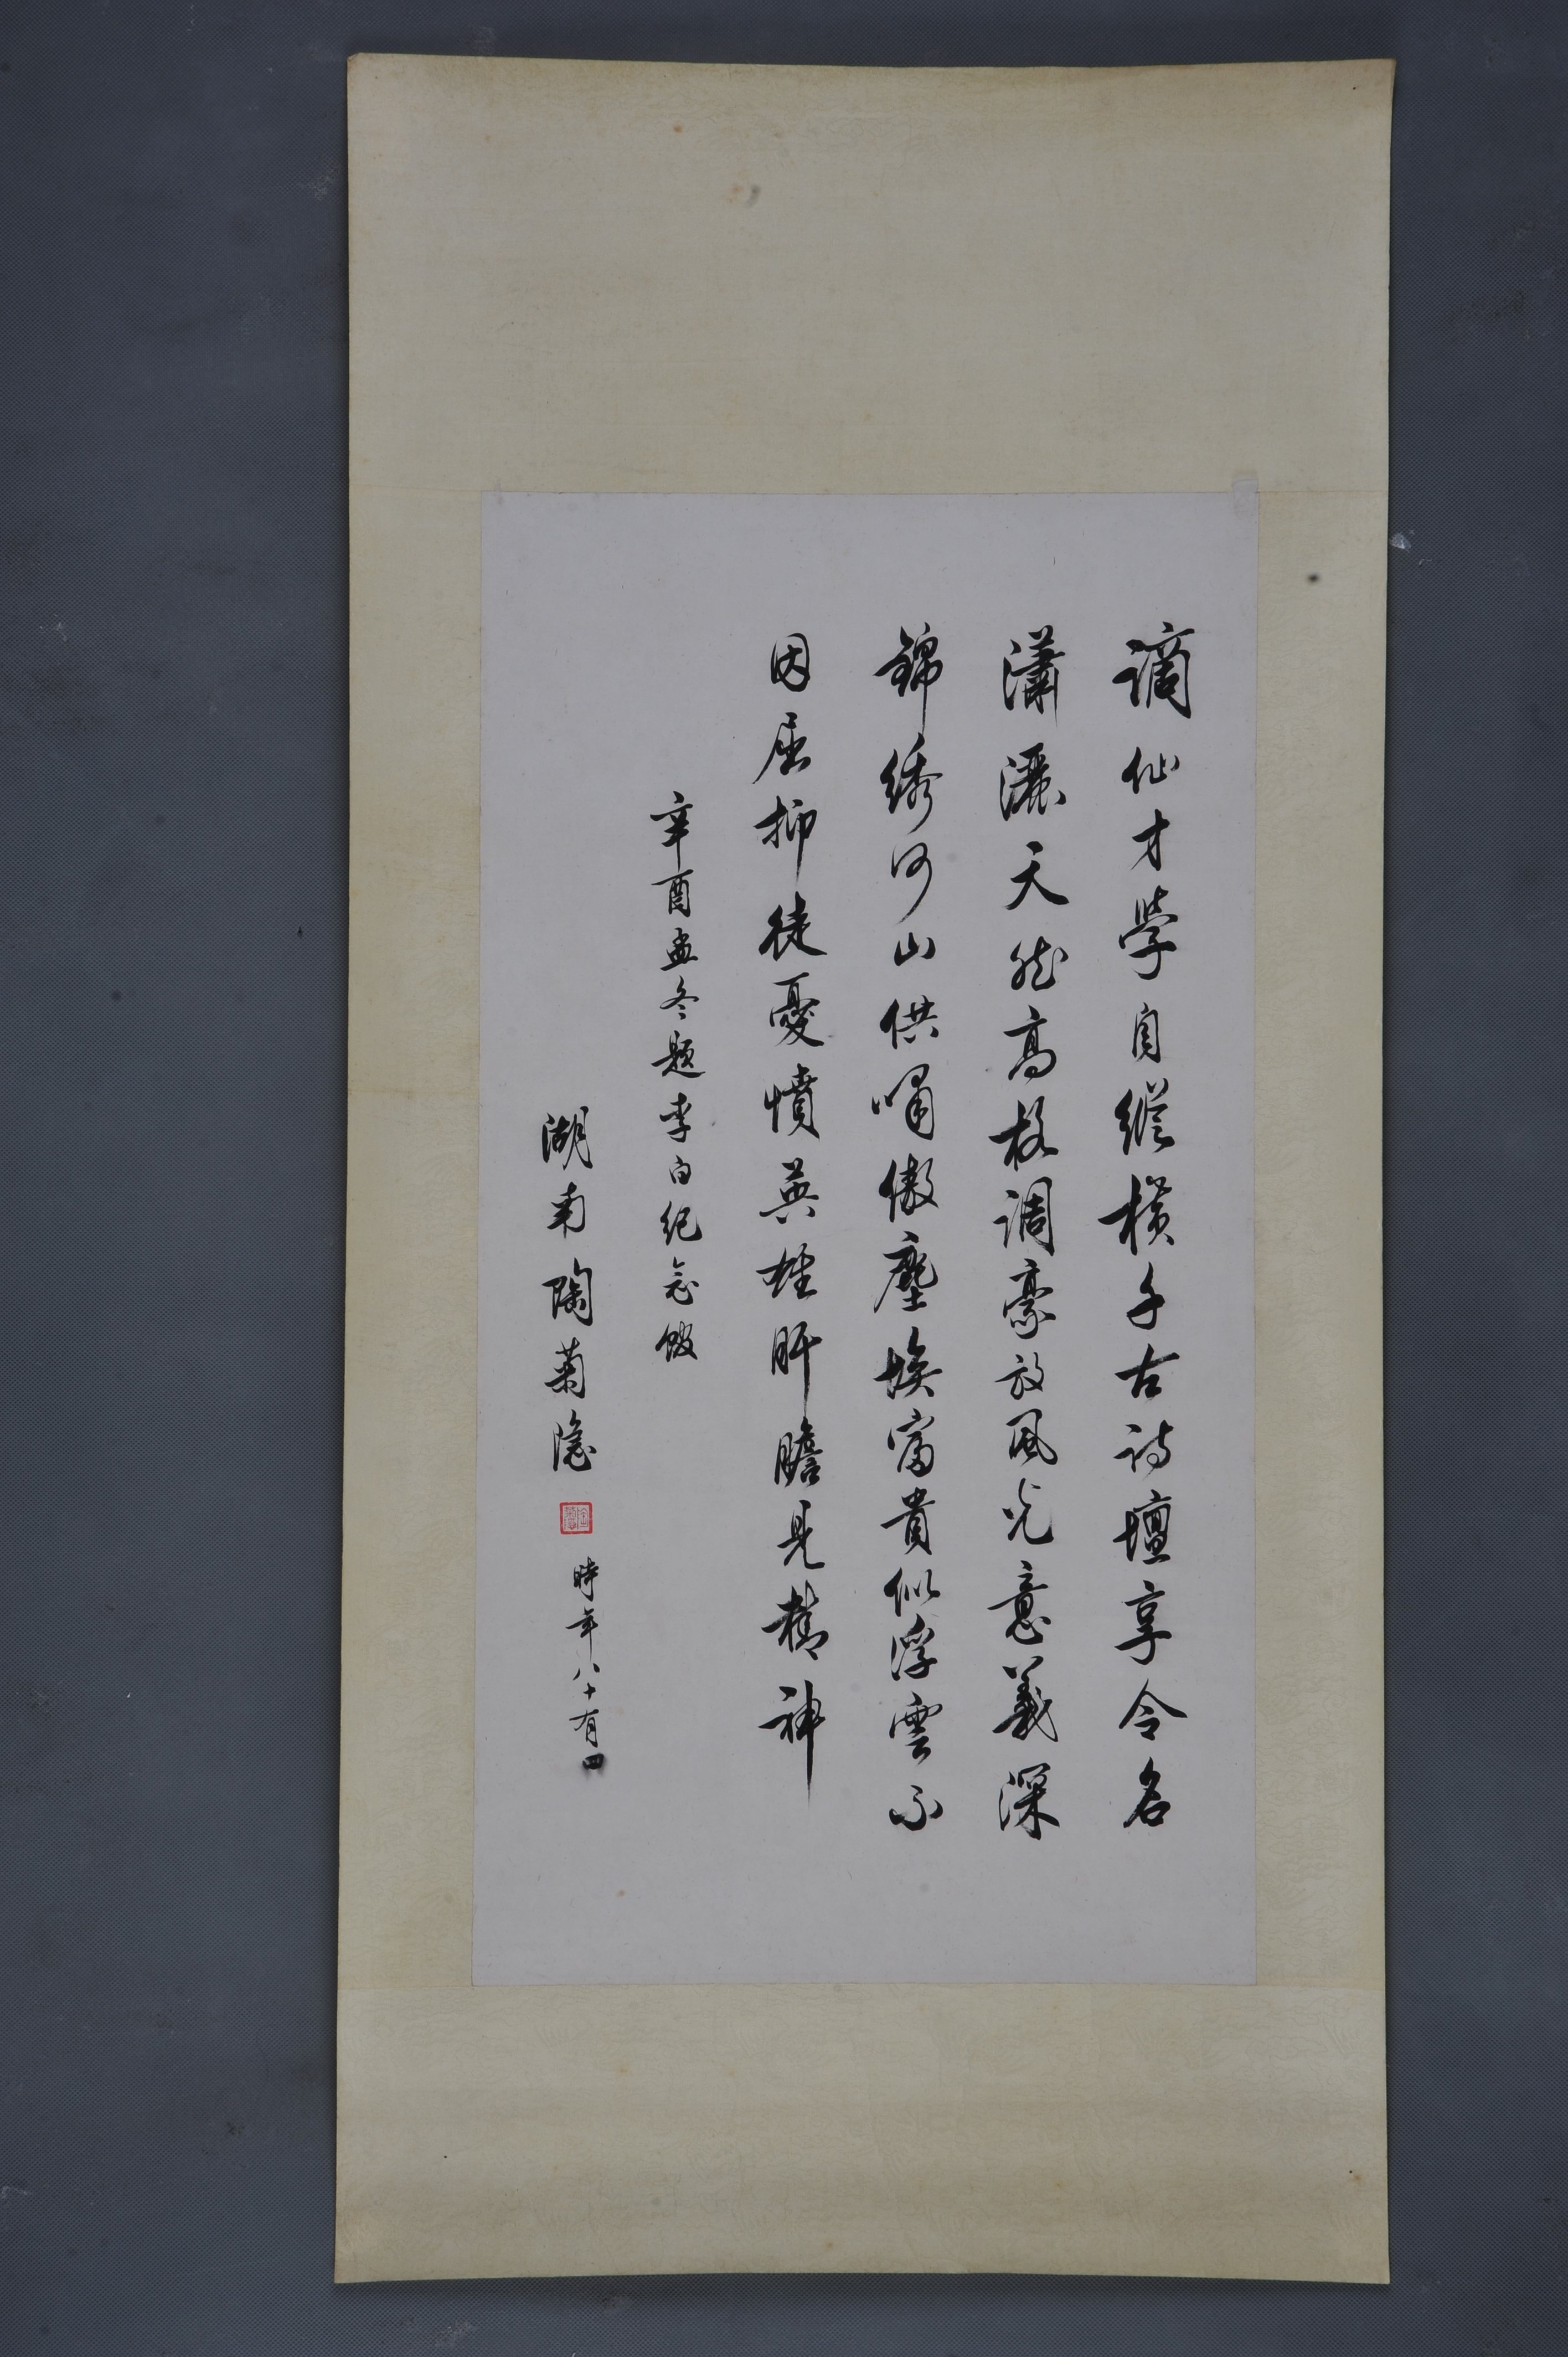 謫仙才學自縱橫千古詩壇享令名
瀟灑天然高格調豪放風光意義深
錦綉河山供嘯傲塵埃富貴似浮雲不
因屈抑徒憂憤英雄肝膽見精神
辛酉孟冬题李白纪念馆
湖南陶菊隐
時年八十有四